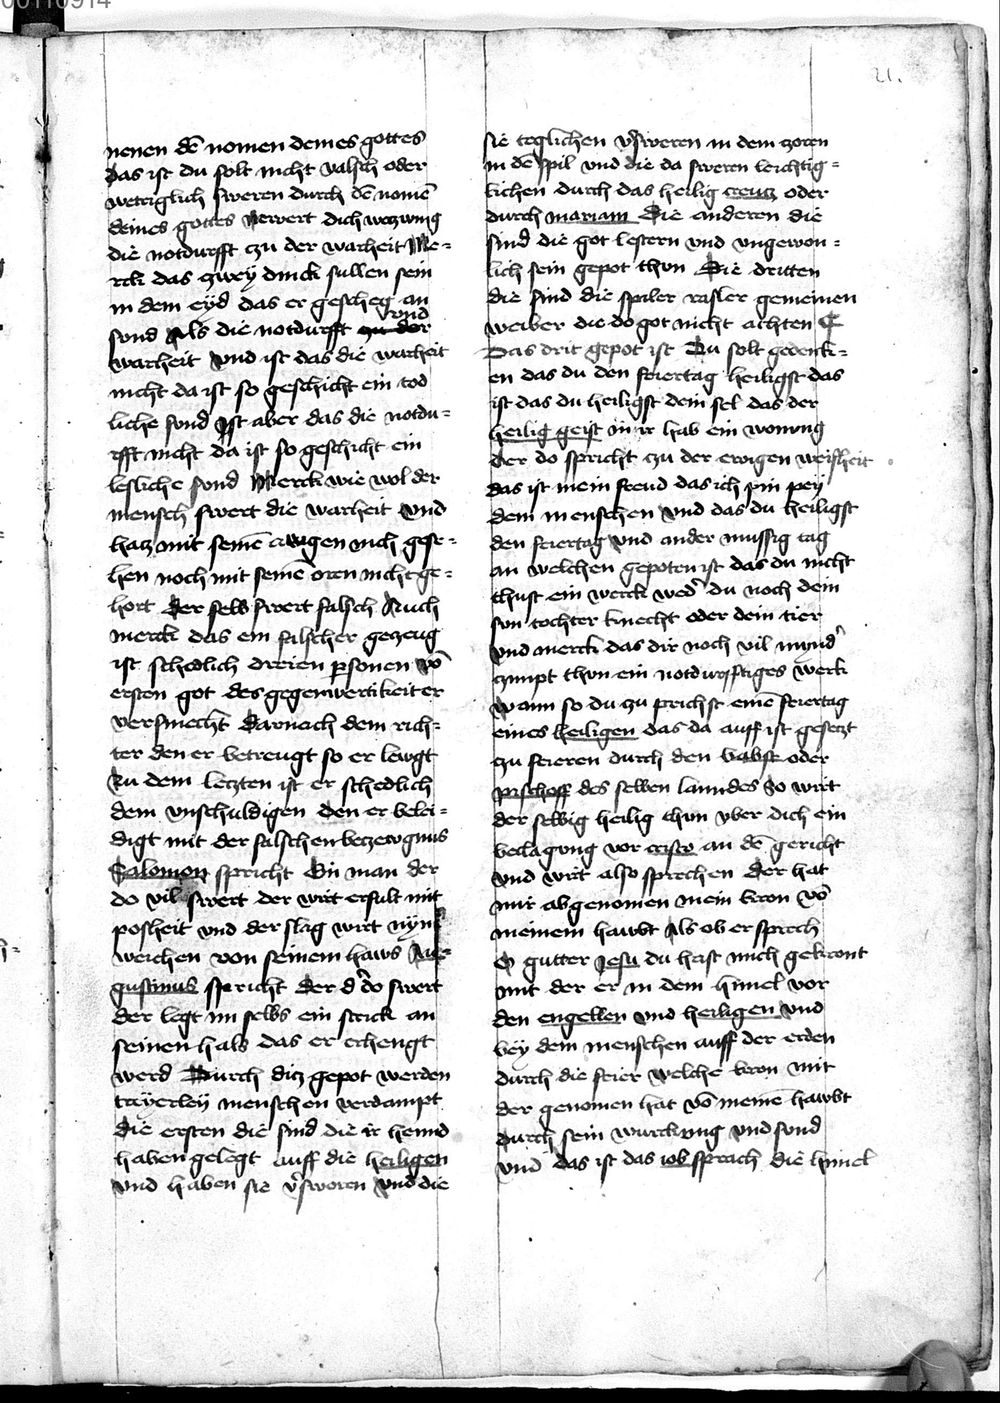 00110914
21.
nenen dē nomen deines gottes
das ist du solt nicht valsch oder
swern durch dē nomē
deines gottes
die notdurfft czu der warheit Me-
rck das zwey dinck sullen sein
in dem eyd das er geschech an
sund Als die notdurfft czu der vnd
warheit Vnd ist das die warheit
nicht da ist so geschicht ein tod
liche sund Ist aber das die notdu-
rfft nicht da ist so geschicht ein
lesliche sund Merck wie wol der
mensch swert die warheit Vnd
hatz mit seinē awgen nich gese-
hen noch mit seinē oren nicht ge-
hort der selb swert falsch Auch
merck das ein falscher gezeug
ist schedlich dreien personen vō
ersten got des gegenwertikeit er
versmecht Darnach dem rich-
ter den er betreugt so er lewgt
Zu dem letzten ist er schedlich
dem vnschuldigen den er belei-
digt mit der falschen betzewgnus
Salomon spricht Ein man der
do vil swert der wirt erfult mit
posheit vnd der slag wirt nym̄
weichen von seinem haws Au-
gustinus spricht Der do swert
der legt im selbs ein strick an
seinen hals das er erhengt
werd Durch ditz gepot werden
treyerley menschen verdampt
die ersten die sind die ir hennd
haben gelegt auff die heiligen
vnd haben sie v̓sworen vnd die
sie teglichen v̓sweren in dem zoren
in dē spil vnd die da sweren leichtig-
lichen durch das heilig creutz oder
durch mariam Die anderen die
sind die got lestern vnd vngewon-
lich sein gepot thun Die dritten
die sind die spiler rasler gemeinen
weiber die do got nicht achten
Das drit gepot ist Du solt gedenk-
en das du den feiertag heiligst das
ist das du heiligst dein sel das der
heilig geist in ir hab ein wonung
der do spricht czu der ewigen weisheit
das ist mein freud das ich sein pey
dem menschen vnd das du heiligst
den feiertag vnd ander mussig tag
an welchen gepoten ist das du nicht
thust ein werck wed̓ du noch dein
sun tochter knecht oder dein tier
vnd merck das dir noch vil mynd̓
zimpt thun ein notdurfftiges werk
wann so du zu prichst einē feiertag
eines heiligen das da auff ist gesetzt
zu feieren durch den babst oder
pischoff des selben lanndes So wirt
der selbig heilig thun vber dich ein
beclagung vor cristo an dē gericht
vnd wirt also sprechen Der hat
mir abgenomen mein kron vō
meinem hawbt Als ob er sprech
O gutter Jesu du hast mich gekront
mit der er in dem himel vor
den engellen vnd heiligen Vnd
bey dem menschen auff der erden
durch die feier welche kron mit
der genomen hat vō meinē hawbt
durch sein wurckung vnd sund
vnd das ist das iob sprach die himel